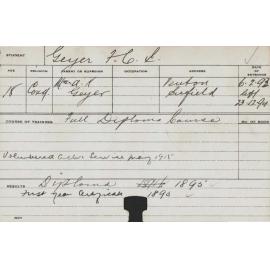 STUDENT Geyer F. C. S.
AGE RELIGION PARENT OR GUARDIAN OCCUPATION ADDRESS DATE OF ENTRANCE
18 Cong. A. R. Geyer Enfield 6.2.93
left
23.12.94
COURSE OF TRAINING Full Diploma Course
Volunteered Active Service May 1915
RESULTS Diploma 1895
First Year Certificate 1893